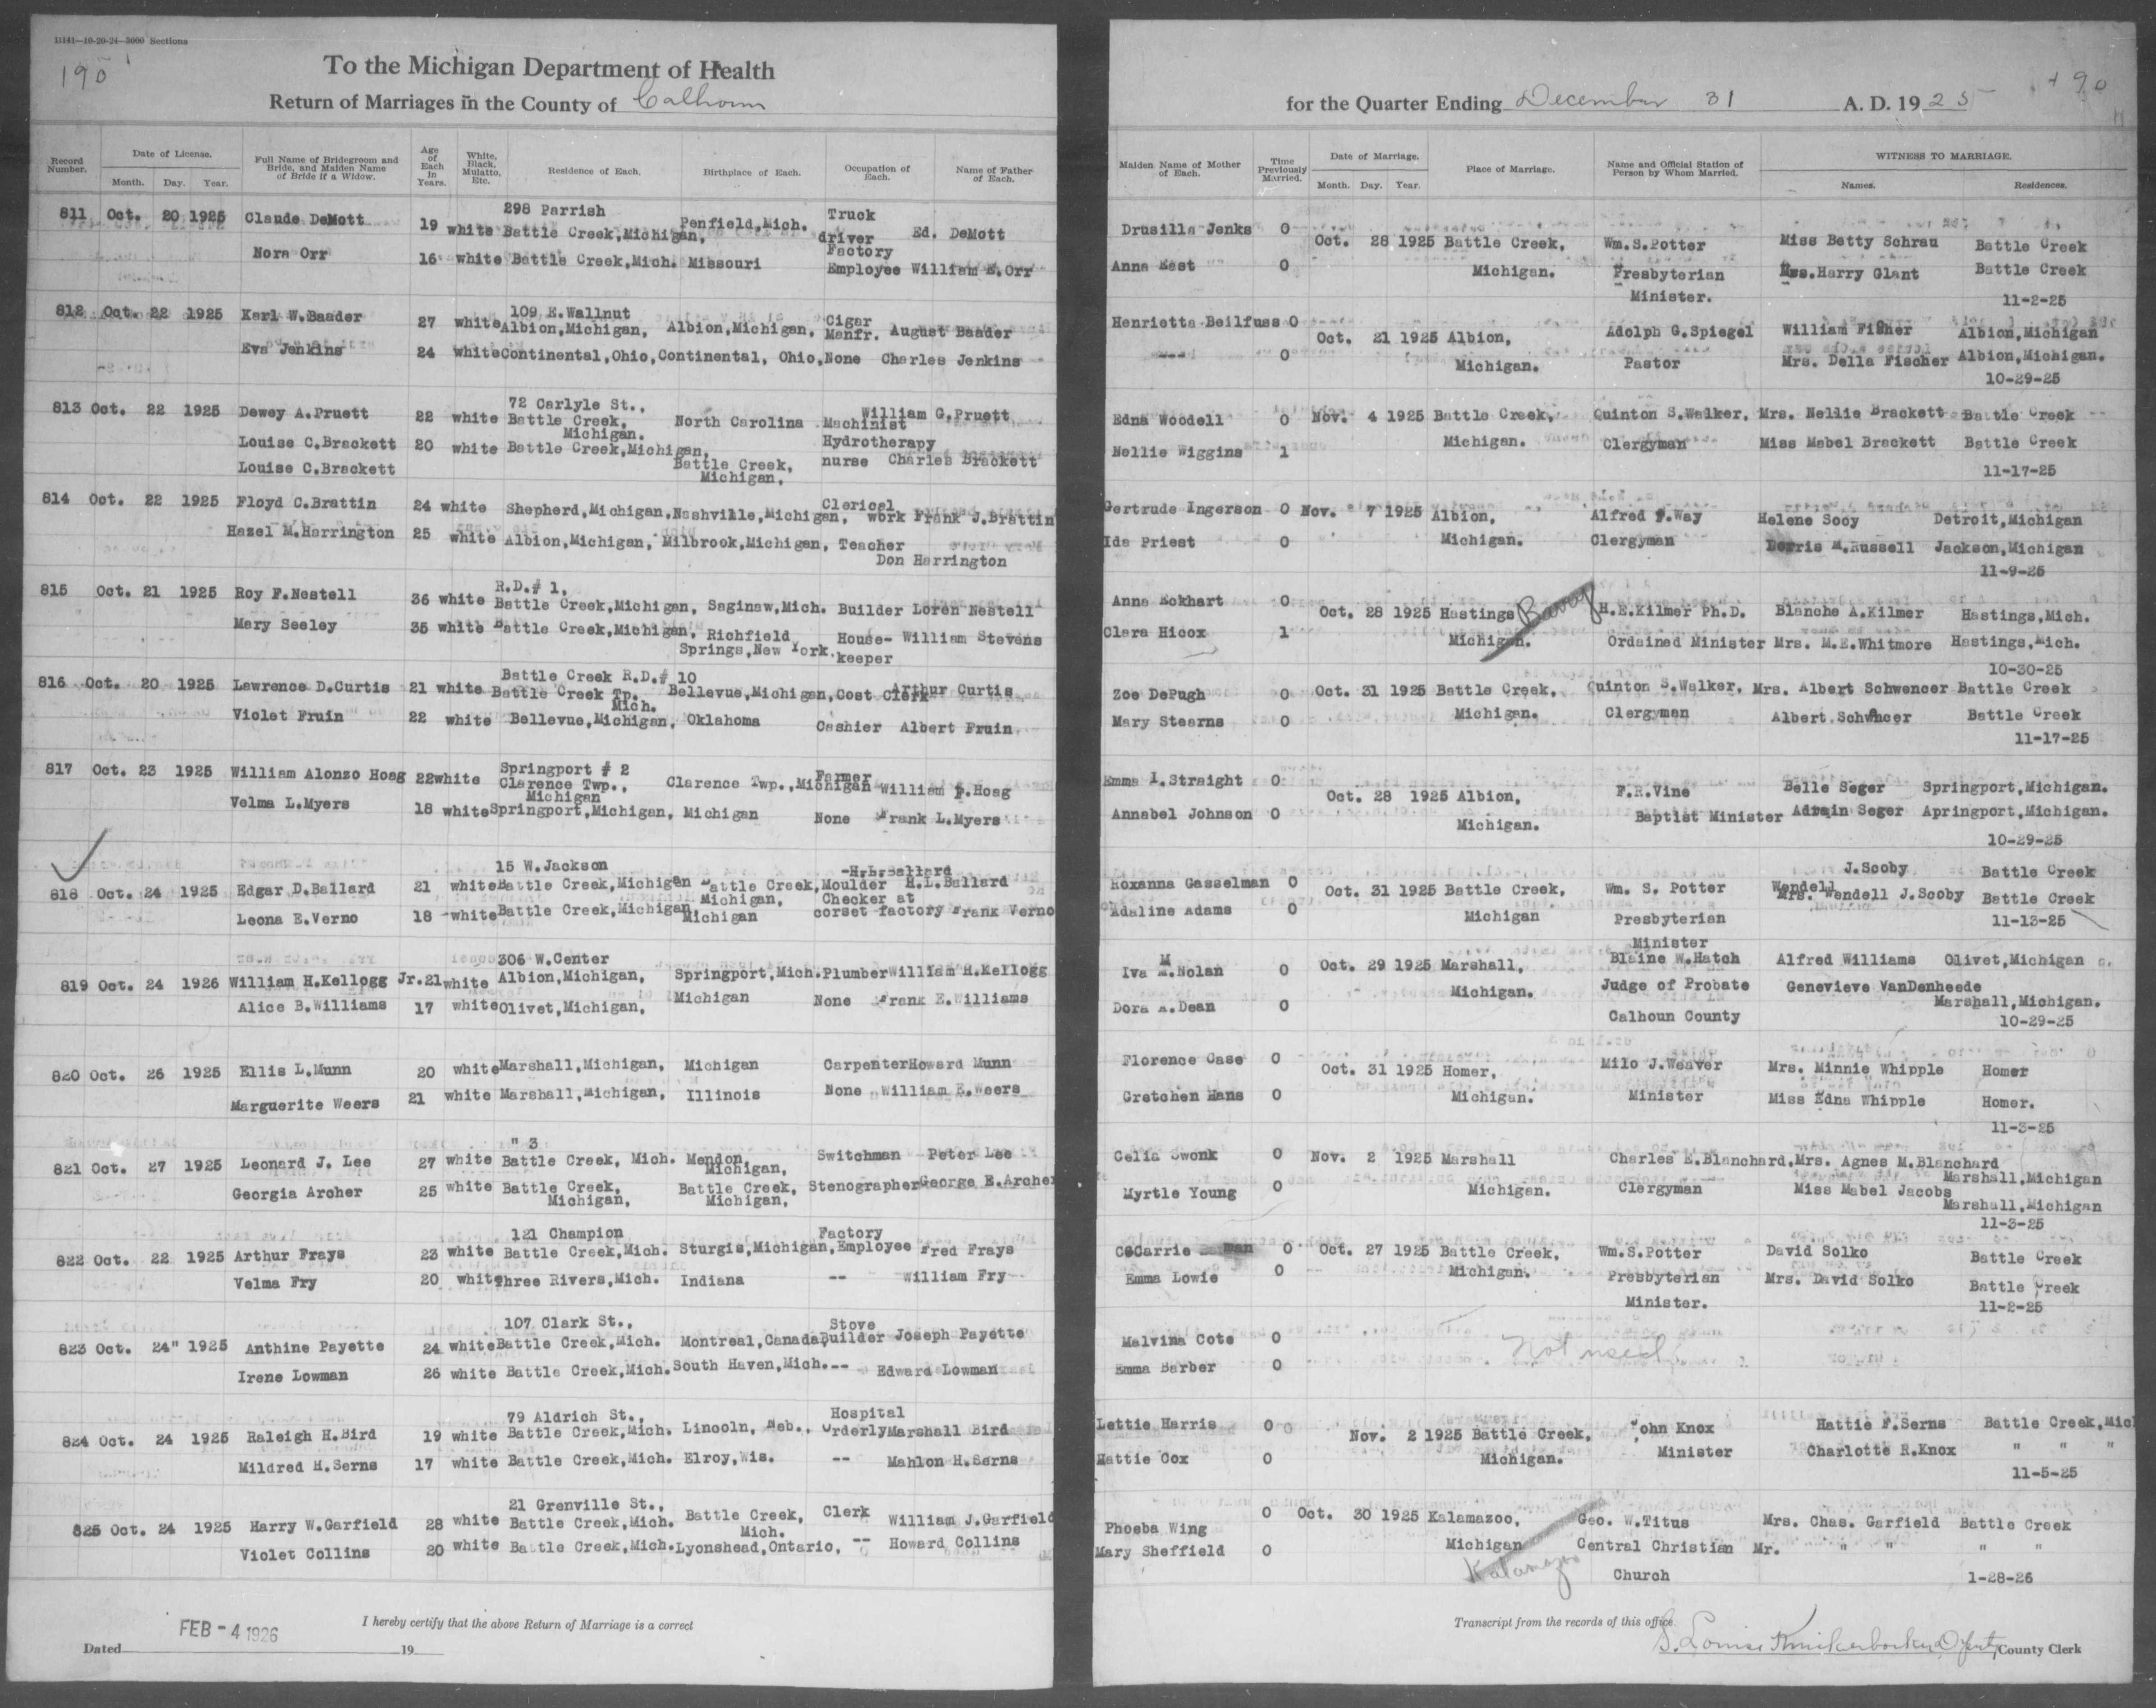 11141—10-20-24—3000 Sections
190
To the Michigan Department of Health
Return of Marriages in the County of Calhoun
for the Quarter Ending December 31 A. D. 1925
190
Record Number.
Date of License.
Month. Day. Year.
Full Name of Bridegroom and Bride, and Maiden Name of Bride if a Widow.
Age of Each in Years.
White, Black, Mulatto, Etc.
Residence of Each.
Birthplace of Each.
Occupation of Each.
Name of Father of Each.
Maiden Name of Mother of Each.
Time Previously Married.
Date of Marriage.
Month. Day. Year.
Place of Marriage.
Name and Official Station of Person by Whom Married.
WITNESS TO MARRIAGE.
Names. Residences.
811 Oct. 20 1925 Claude DeMott 19 white 298 Parrish Battle Creek,Michigan, Penfield,Mich. Truck driver Ed. DeMott Drusilla Jenks 0
Oct. 28 1925 Battle Creek, Michigan. Wm.S.Potter Presbyterian Minister. Miss Betty Schrau Battle Creek
Nora Orr 16 white Battle Creek,Mich. Missouri Factory Employee William E.Orr Anna East 0 Mrs.Harry Glant Battle Creek
11-2-25
812 Oct. 22 1925 Karl W.Baader 27 white 109 E.Wallnut Albion,Michigan, Albion,Michigan, Cigar Manfr. August Baader Henrietta Beilfuss 0
Oct. 21 1925 Albion, Michigan. Adolph G.Spiegel Pastor William Fisher Albion,Michigan
Eva Jenkins 24 white Continental,Ohio, Continental, Ohio, None Charles Jenkins ---- 0 Mrs. Della Fischer Albion,Michigan.
10-29-25
813 Oct. 22 1925 Dewey A.Pruett 22 white 72 Carlyle St., Battle Creek, Michigan. North Carolina Machinist William G.Pruett Edna Woodell 0
Nov. 4 1925 Battle Creek, Michigan. Quinton S.Walker, Clergyman Mrs. Nellie Brackett Battle Creek
Louise C.Brackett 20 white Battle Creek,Michigan, Battle Creek, Michigan, Hydrotherapy nurse Charles Brackett Nellie Wiggins 1 Miss Mabel Brackett Battle Creek
Louise C.Brackett
11-17-25
814 Oct. 22 1925 Floyd C.Brattin 24 white Shepherd,Michigan, Nashville,Michigan, Clerical work Frank J.Brattin Gertrude Ingerson 0
Nov. 7 1925 Albion, Michigan. Alfred F.Way Clergyman Helene Sooy Detroit,Michigan
Hazel M.Harrington 25 white Albion,Michigan, Milbrook,Michigan, Teacher Don Harrington Ida Priest 0 Dorris M.Russell Jackson,Michigan
11-9-25
815 Oct. 21 1925 Roy F.Nestell 36 white R.D.# 1, Battle Creek,Michigan, Saginaw,Mich. Builder Loren Nestell Anna Eckhart 0
Oct. 28 1925 Hastings Michigan. Barry H.E.Kilmer Ph.D. Ordained Minister Blanche A.Kilmer Hastings,Mich.
Mary Seeley 35 white Battle Creek,Michigan, Richfield Springs,New York. House-keeper William Stevens Clara Hicox 1 Mrs. M.E.Whitmore Hastings,Mich.
10-30-25
816 Oct. 20 1925 Lawrence D.Curtis 21 white Battle Creek R.D.# 10 Battle Creek Tp. Mich. Bellevue,Michigan, Cost Clerk Arthur Curtis Zoe DePugh 0
Oct. 31 1925 Battle Creek, Michigan. Quinton S.Walker, Clergyman Mrs. Albert Schwencer Battle Creek
Violet Fruin 22 white Bellevue,Michigan, Oklahoma Cashier Albert Fruin Mary Stearns 0 Albert Schwncer Battle Creek
11-17-25
817 Oct. 23 1925 William Alonzo Hoag 22 white Springport # 2 Clarence Twp., Michigan Clarence Twp.,Michigan Farmer William F.Hoag Emma I.Straight 0
Oct. 28 1925 Albion, Michigan. F.R.Vine Baptist Minister Belle Seger Springport,Michigan.
Velma L.Myers 18 white Springport,Michigan, Michigan None Frank L.Myers Annabel Johnson 0 Adrain Seger Apringport,Michigan.
10-29-25
818 Oct. 24 1925 Edgar D.Ballard 21 white 15 W.Jackson Battle Creek,Michigan Battle Creek, Michigan, Moulder H.L.Ballard H.L.Ballard Roxanna Gasselman 0
Oct. 31 1925 Battle Creek, Michigan Wm. S. Potter Presbyterian Minister Wendell J.Scoby Battle Creek
Leona E.Verno 18 white Battle Creek,Michigan Michigan Checker at corset factory Frank Verno Adaline Adams 0 Mrs. Wendell J.Scoby Battle Creek
11-13-25
819 Oct. 24 1926 William H.Kellogg Jr. 21 white 306 W.Center Albion,Michigan, Springport,Mich. Plumber William H.Kellogg Iva M.Nolan 0
Oct. 29 1925 Marshall, Michigan. Blaine W.Hatch Judge of Probate Calhoun County Alfred Williams Olivet,Michigan
Alice B.Williams 17 white Olivet,Michigan, Michigan None Frank E.Williams Dora A.Dean 0 Genevieve VanDenheede Marshall,Michigan.
10-29-25
820 Oct. 26 1925 Ellis L.Munn 20 white Marshall,Michigan, Michigan Carpenter Howard Munn Florence Case 0
Oct. 31 1925 Homer, Michigan. Milo J.Weaver Minister Mrs. Minnie Whipple Homer
Marguerite Weers 21 white Marshall,Michigan, Illinois None William E.Weers Gretchen Hans 0 Miss Edna Whipple Homer.
11-3-25
821 Oct. 27 1925 Leonard J. Lee 27 white " 3 Battle Creek, Mich. Mendon, Michigan, Switchman Peter Lee Celia Swonk 0
Nov. 2 1925 Marshall Michigan. Charles E.Blanchard, Clergyman Mrs. Agnes M.Blanchard Marshall,Michigan
Georgia Archer 25 white Battle Creek, Michigan, Battle Creek, Michigan, Stenographer George E.Archer Myrtle Young 0 Miss Mabel Jacobs Marshall,Michigan
11-3-25
822 Oct. 22 1925 Arthur Frays 23 white 121 Champion Battle Creek,Mich. Sturgis,Michigan, Factory Employee Fred Frays Carrie 0
Oct. 27 1925 Battle Creek, Michigan. Wm.S.Potter Presbyterian Minister. David Solko Battle Creek
Velma Fry 20 white Three Rivers,Mich. Indiana -- William Fry Emma Lowie 0 Mrs. David Solko Battle Creek
11-2-25
823 Oct. 24" 1925 Anthine Payette 24 white 107 Clark St., Battle Creek,Mich. Montreal,Canada, Stove Builder Joseph Payette Malvina Cote 0
Not used
Irene Lowman 26 white Battle Creek,Mich. South Haven,Mich. -- Edward Lowman Emma Barber 0
824 Oct. 24 1925 Raleigh H.Bird 19 white 79 Aldrich St., Battle Creek,Mich. Lincoln, Neb., Hospital Orderly Marshall Bird Lettie Harris 0
Nov. 2 1925 Battle Creek, Michigan. John Knox Minister Hattie F.Serns Battle Creek,Mich
Mildred H.Serns 17 white Battle Creek,Mich. Elroy,Wis. -- Mahlon H.Serns Hattie Cox 0 Charlotte R.Knox " " "
11-5-25
825 Oct. 24 1925 Harry W.Garfield 28 white 21 Grenville St., Battle Creek,Mich. Battle Creek, Mich. Clerk William J.Garfield Phoeba Wing 0
Oct. 30 1925 Kalamazoo, Michigan Kalamazoo Geo. W.Titus Central Christian Church Mrs. Chas. Garfield Battle Creek
Violet Collins 20 white Battle Creek,Mich. Lyonshead,Ontario, -- Howard Collins Mary Sheffield 0 Mr. " " " "
1-28-26
I hereby certify that the above Return of Marriage is a correct
Transcript from the records of this office.
Dated FEB - 4 1926 19
S. Louise Knickerbocker, Deputy County Clerk